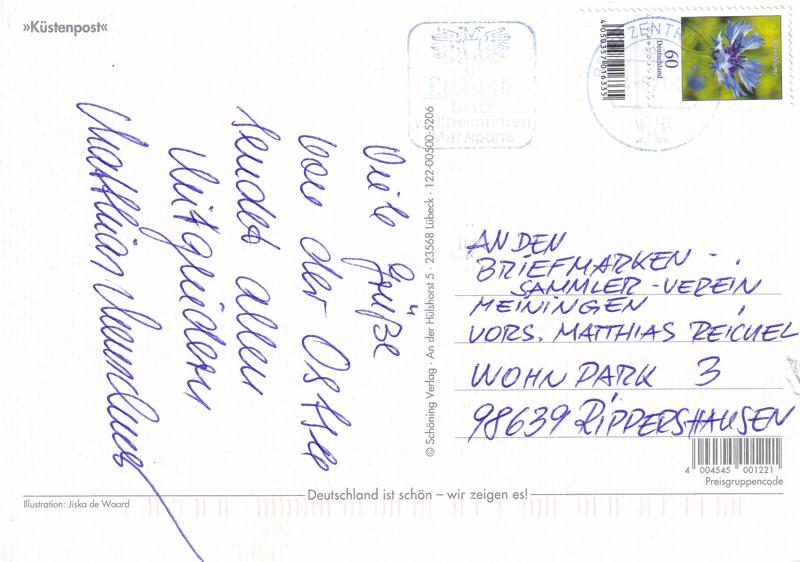 »Küstenpost«
Viele Grüße
von der Ostsee
sendet allen
Mitgliedern
Matthias
© Schöning Verlag · An der Hülshorst 5 · 23568 Lübeck · 122-00500-5206
Stadt
Marzipans
4050357016335
Deutschland
60
Kornblume
AN DEN
BRIEFMARKEN -
SAMMLER-VEREIN
MEININGEN
VORS. MATTHIAS REICHEL
WOHNPARK 3
98639 RIPPERSHAUSEN
4 004545 001221
Preisgruppencode
Deutschland ist schön – wir zeigen es!
Illustration: Jiska de Waard